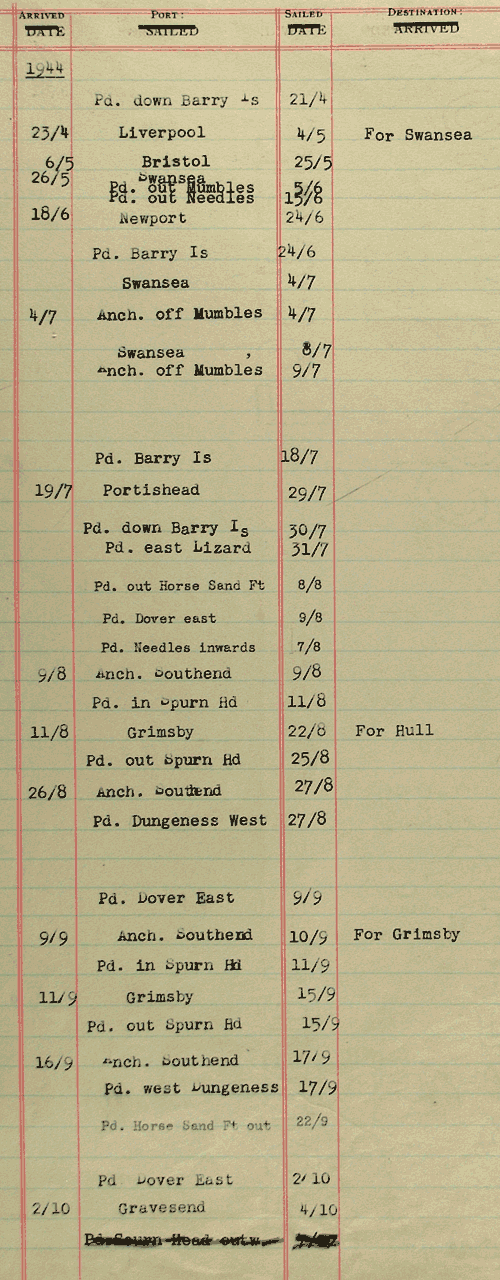 ARRIVED PORT: SAILED DESTINATION:
DATE SAILED DATE ARRIVED
1944
Pd. down Barry Is 21/4
23/4 Liverpool 4/5 For Swansea
6/5 Bristol 25/5
26/5 Swansea
Pd. out Mumbles 5/6
Pd. out Needles 15/6
18/6 Newport 24/6
Pd. Barry Is 24/6
Swansea 4/7
4/7 Anch. off Mumbles 4/7
Swansea , 8/7
Anch. off Mumbles 9/7
Pd. Barry Is 18/7
19/7 Portishead 29/7
Pd. down Barry Is 30/7
Pd. east Lizard 31/7
Pd. out Horse Sand Ft 8/8
Pd. Dover east 9/8
Pd. Needles inwards 7/8
9/8 Anch. Southend 9/8
Pd. in Spurn Hd 11/8
11/8 Grimsby 22/8 For Hull
Pd. out Spurn Hd 25/8
26/8 Anch. Southend 27/8
Pd. Dungeness West 27/8
Pd. Dover East 9/9
9/9 Anch. Southend 10/9 For Grimsby
Pd. in Spurn Hd 11/9
11/9 Grimsby 15/9
Pd. out Spurn Hd 15/9
16/9 Anch. Southend 17/9
Pd. west Dungeness 17/9
Pd. Horse Sand Ft out 22/9
Pd Dover East 2/10
2/10 Gravesend 4/10
Pd Spurn Head outw.